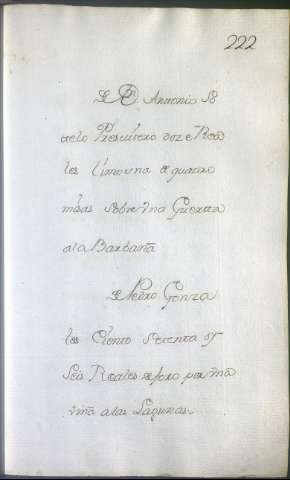 222
D. Antonio So
telo Presvitero doze Rea
les limosna de quatro
misas sobre vna Guerta
ala Barbaña
D. Pedro Gonza
les Ciento setenta y
seis Reales de foro por vna
viña alas Lagunas.